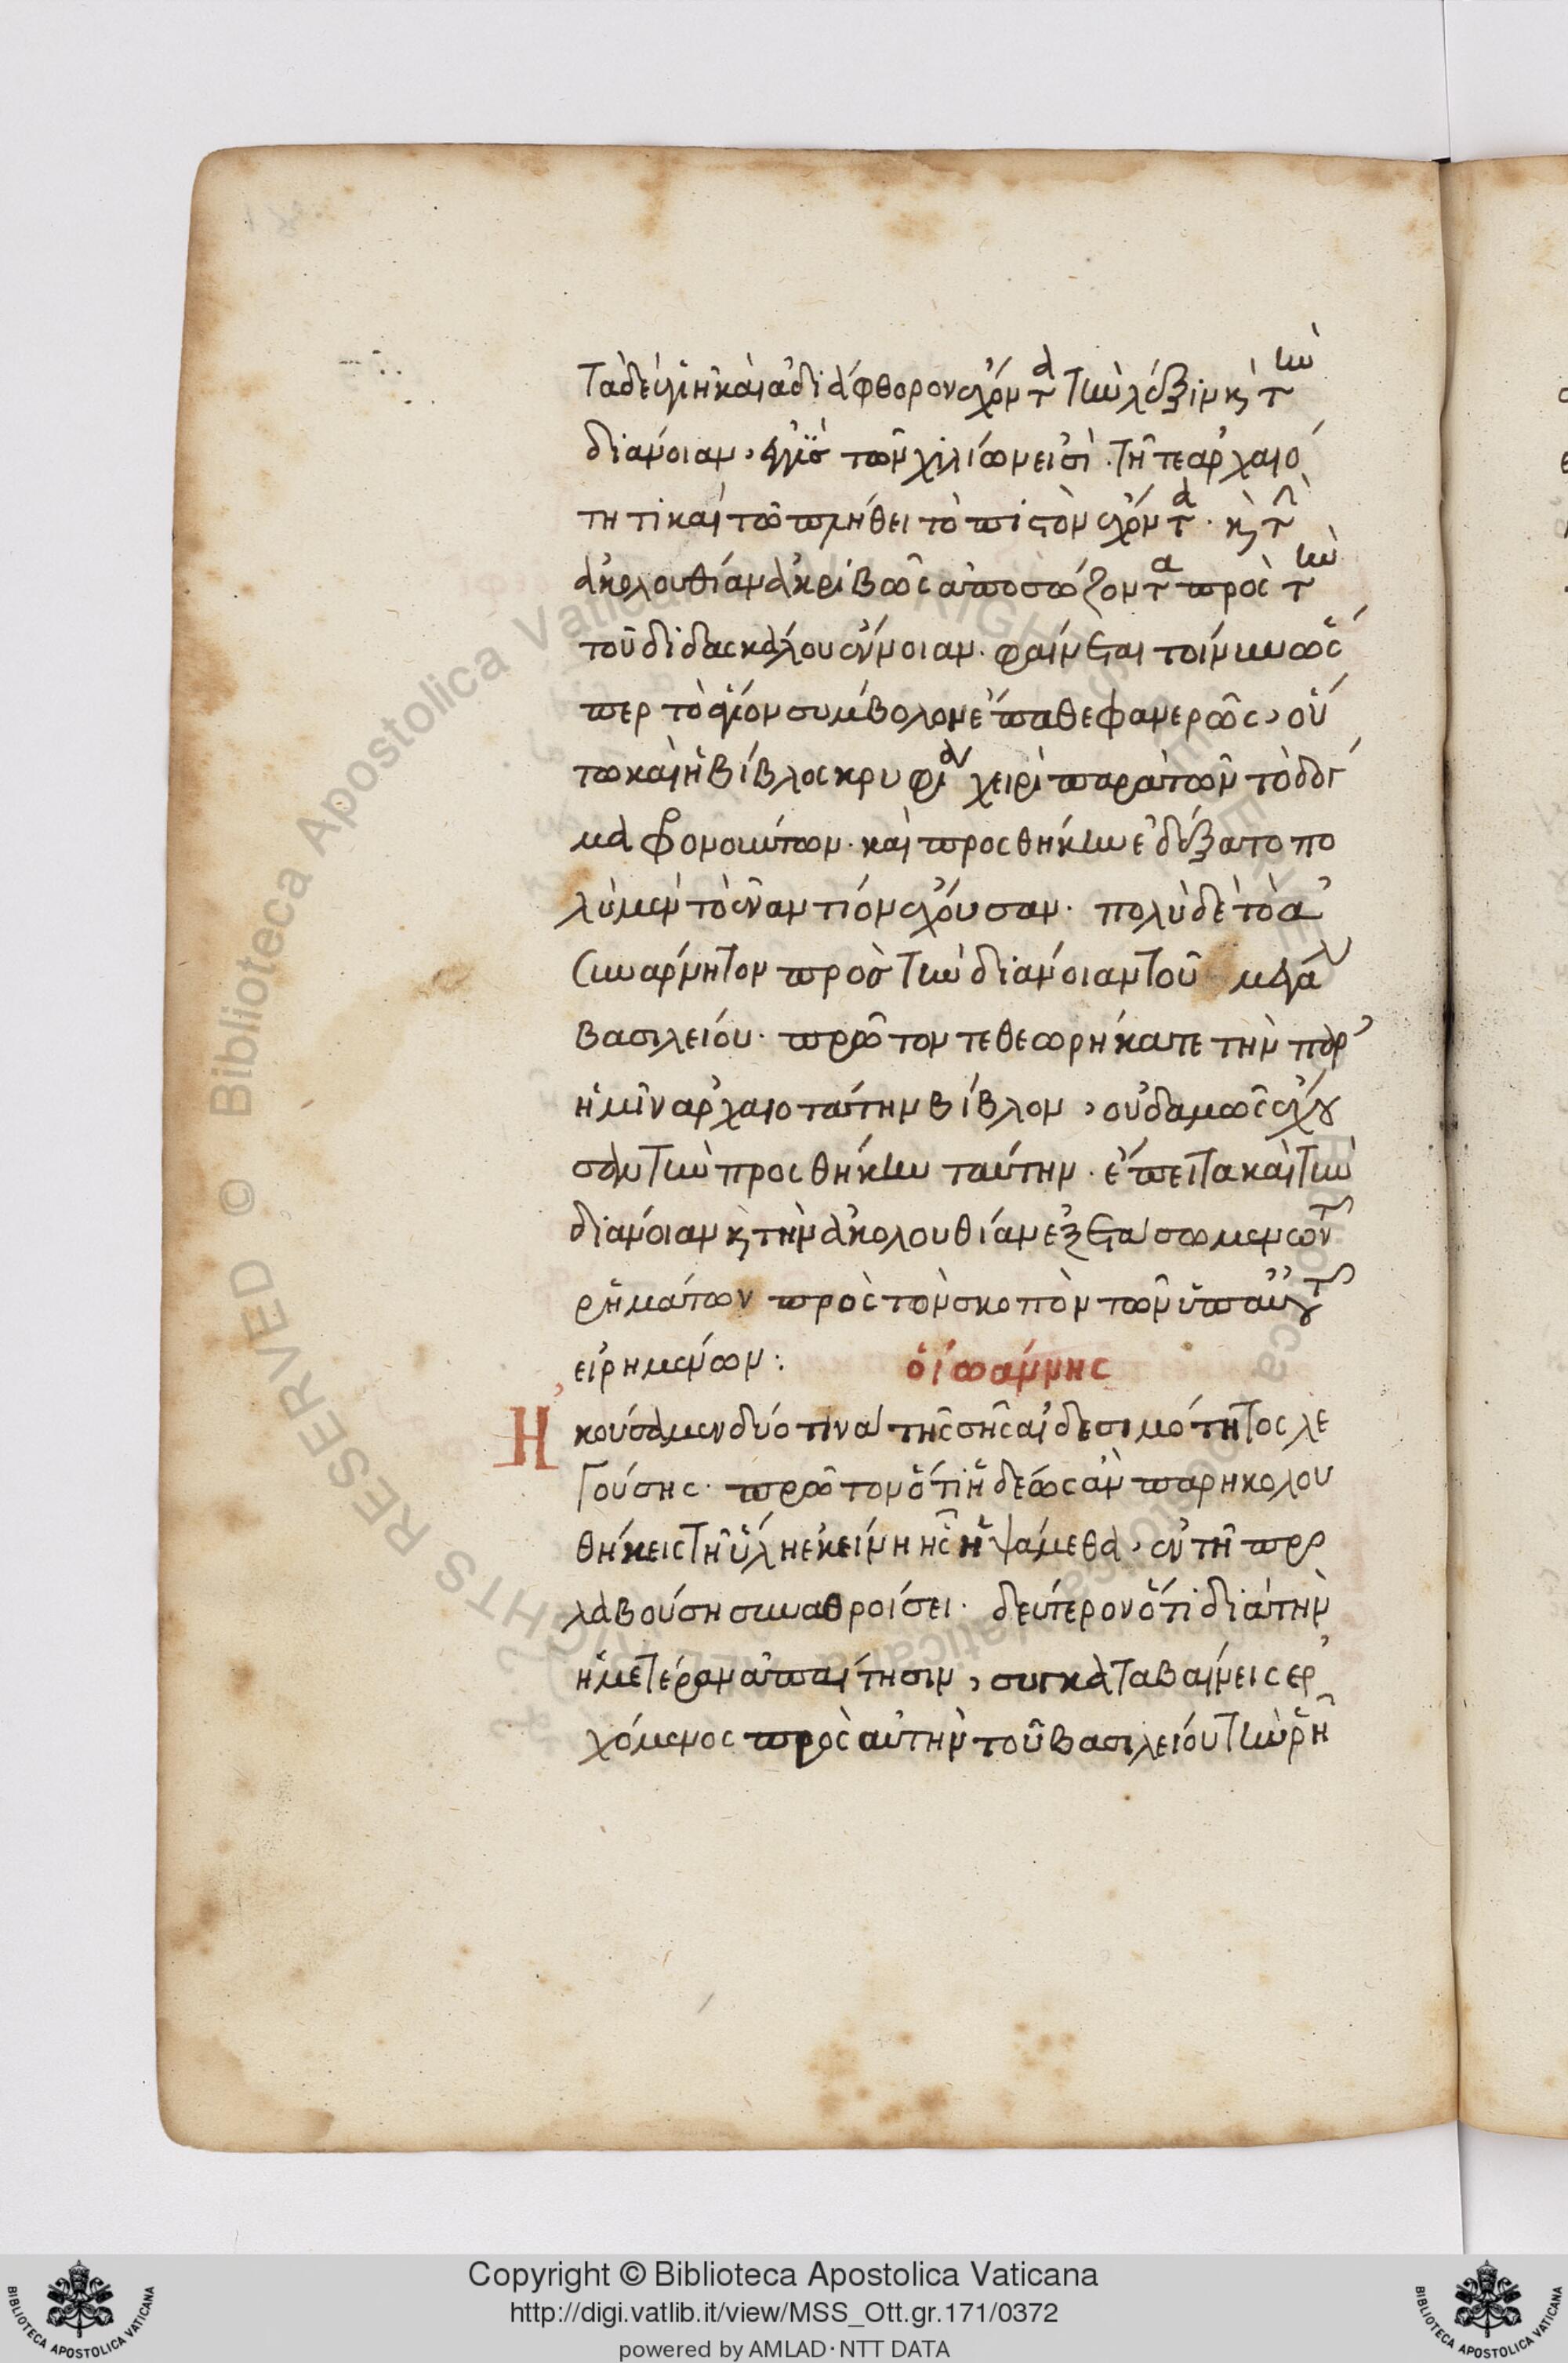 τὰ δὲ ὑγιῆ καὶ ἀδιάφθορον ἔχοντα τὴν λέξιν κ τὴν
διάνοιαν, ἐγγὺς τῶν χιλίων εἰσὶ. τῇ τε ἀρχαιό
τητι καὶ τῶ πλήθει τὸ πιστὸν ἔχοντα. κ τὴν
ἀκολουθίαν ἀκριβῶς ἀποσώζοντα πρὸς τὴν
τοῦ διδασκάλου ἔννοιαν. φαίνεται τοίνυν ὥς
περ τὸ ἅγιον σύμβολον ἔπαθε φανερῶς, οὕ
τω καὶ ἡ βίβλος κρυφίαν χειρὶ παρὰ τῶν τὸ δόγ
μα φρονούντων. καὶ προσθήκην ἐδέξατο πο
λὺ μὲν τὸ ἐναντίον ἔχουσαν. πολὺ δὲ τὸ ἀ
συνάρμητον πρὸς τὴν διάνοιαν τοῦ μεγάλου
βασιλείου. πρῶτον τεθεωρήκατε τὴν παρ
ἡμῖν ἀρχαιοτάτην βίβλον, οὐδαμῶς ἔχου
σαν τὴν προσθήκην ταύτην. ἔπειτα καὶ τὴν
διάνοιαν κ τὴν ἀκολουθίαν ἐξετάσωμεν τῶν
ῥημάτων πρὸς τὸν σκοπὸν τῶν ὑπ αὐτοῦ
εἰρημένων: ὁ ἰωάννης
Ἠκούσαμεν δύο τινὰ τῆς σῆς αἰδεσιμότητος λε
γούσης. πρῶτον ὅτι ἡδέως ἂν παρηκολου
θήκεις τῇ ὕλη ἐκείνη ἧς ἡψάμεθα, ἐν τῇ προ
λαβούση συναθροίσει. δεύτερον ὅτι διὰ τὴν
ἡμετέραν ἀπαίτησιν, συγκαταβαίνεις ἐρ
χόμενος πρὸς αὐτὴν τοῦ βασιλείου τὴν ῥῆ
Copyright © Biblioteca Apostolica Vaticana
http://digi.vatlib.it/view/MSS_Ott.gr.171/0372
powered by AMLAD·NTT DATA